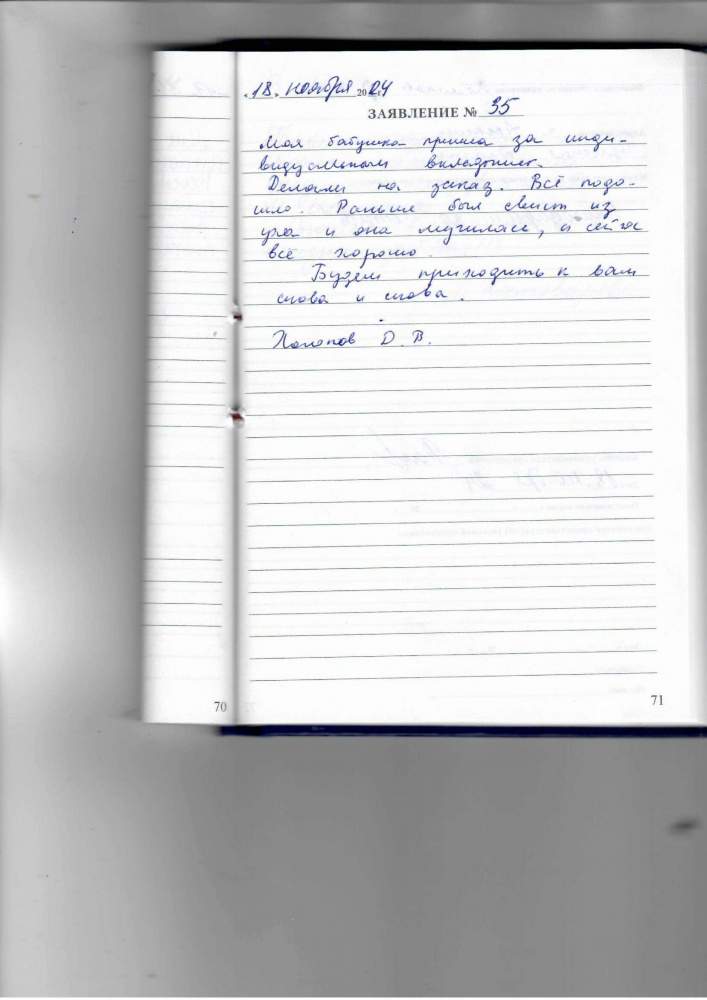 „18„ ноября 2024
ЗАЯВЛЕНИЕ № 35
Моя бабушка пришла за инди-
видуальным вкладышем.
Делали на заказ. Всё подо-
шло. Раньше был свист из
уха и она мучилась, а сейчас
всё хорошо.
Будем приходить к вам
снова и снова.
Д. В.
70
71